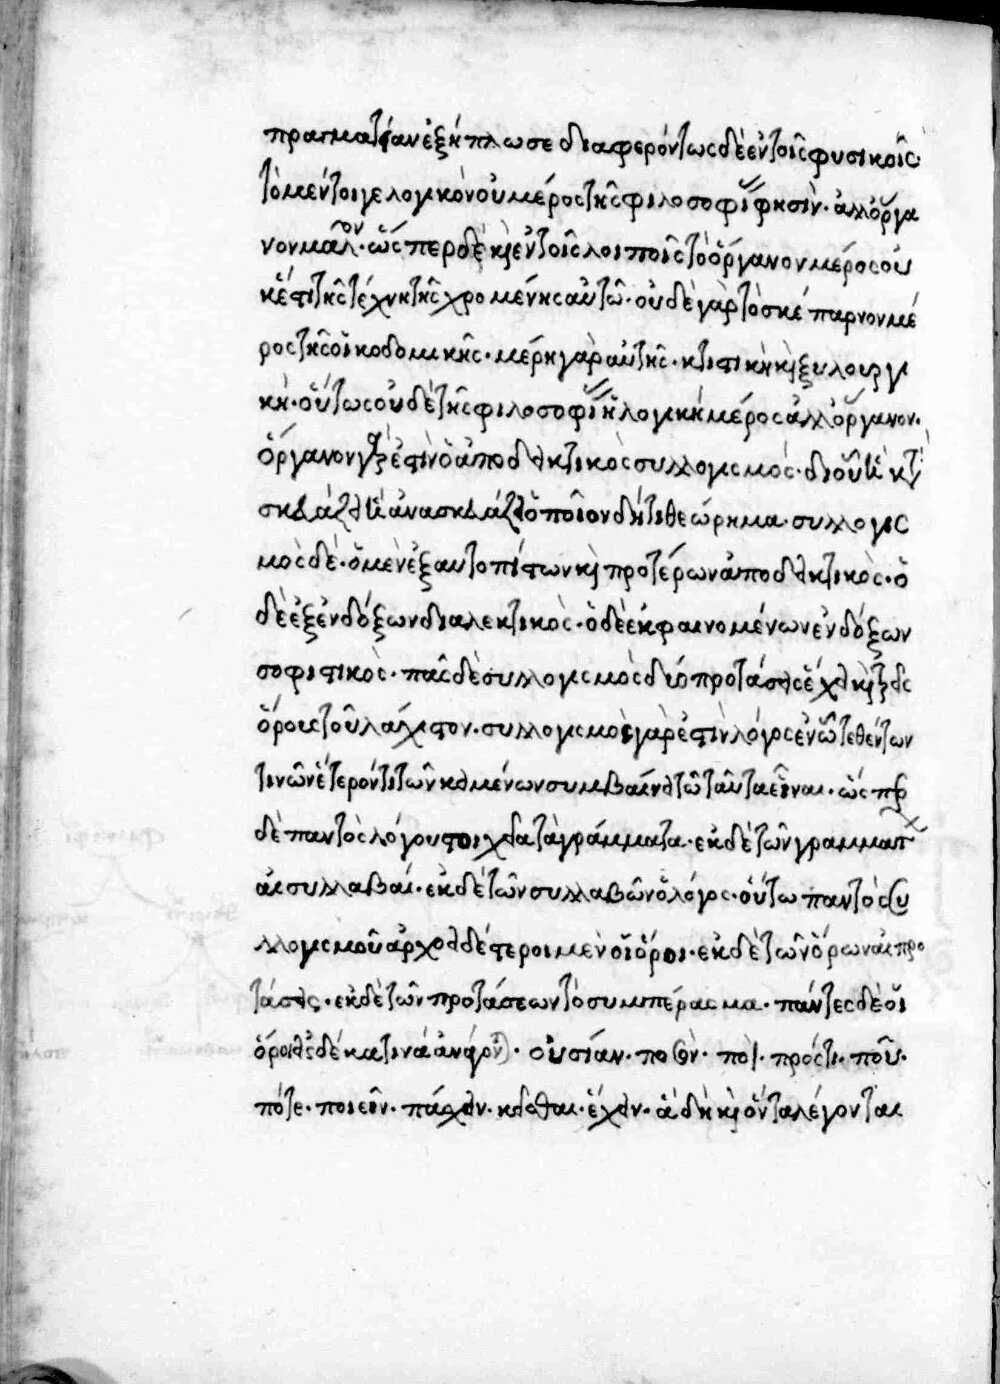 πραγματείαν ἐξήπλωσε διαφερόντως δὲ ἐν τοῖς φυσικοῖς·
τὸ μέντοιγε λογικὸν οὐ μέρος τῆς φιλοσοφίας φησὶν· ἀλλ' ὄργα
νον μᾶλλον· ὥσπερ δὲ καὶ ἐν τοῖς λοιποῖς τὸ ὄργανον μέρος οὐ
κ ἔστι τῆς τέχνης τῆς χρωμένης αὐτῶ· οὐδὲ γὰρ τὸ σκέπαρνον μέ
ρος τῆς οἰκοδομικῆς· μέρη γὰρ αὐτῆς· κτιστικὴ καὶ ξυλουργι
κὴ· οὕτως οὐδὲ τῆς φιλοσοφίας ἡ λογικὴ μέρος ἀλλ' ὄργανον·
ὄργανον γάρ ἐστιν ὁ ἀποδεικτικὸς συλλογισμός· δι' οὗ
σκευάζει ἀνασκευάζει ὁποῖον δήτι θεώρημα· συλλογισ
μὸς δέ· ὁ μὲν ἐξ αυτοπίστων καὶ προτέρων ἀποδεικτικὸς· ὁ
δὲ ἐξ ἐνδόξων διαλεκτικὸς· ὁ δὲ ἐκ φαινομένων ἐνδόξων
σοφιστικὸς· πᾶς δὲ συλλογισμὸς δύο προτάσεις ἔχει καὶ τρεῖς
ὅρους τοὐλάχιστον· συλλογισμὸς γὰρ ἐστὶν λόγος ἐν ὧ τεθέντων
τινῶν ἕτερόν τι τῶν κειμένων συμβαίνει τῶ ταῦτα εἶναι· ὥσπερ
δὲ παντὸς λόγου στοιχεῖα τὰ γράμματα· ἐκ δὲ τῶν γραμμάτων
αἱ συλλαβαί· ἐκ δὲ τῶν συλλαβῶν ὁ λόγος· οὕτω παντὸς συ
λλογισμοῦ ἀρχοειδέστεροι μὲν οἱ ὅροι· ἐκ δὲ τῶν ὅρων αἱ προ
τάσεις· ἐκ δὲ τῶν προτάσεων τὸ συμπέρασμα· πάντες δὲ οἱ
ὅροι εἰς δέκα τινὰ ἀνάγονται· οὐσίαν· ποσὸν· ποιὸν· πρός τι· ποῦ·
πότε· ποιεῖν· πάσχειν· κεῖσθαι· ἔχειν· ἃ δὴ καὶ ὄντα λέγονται